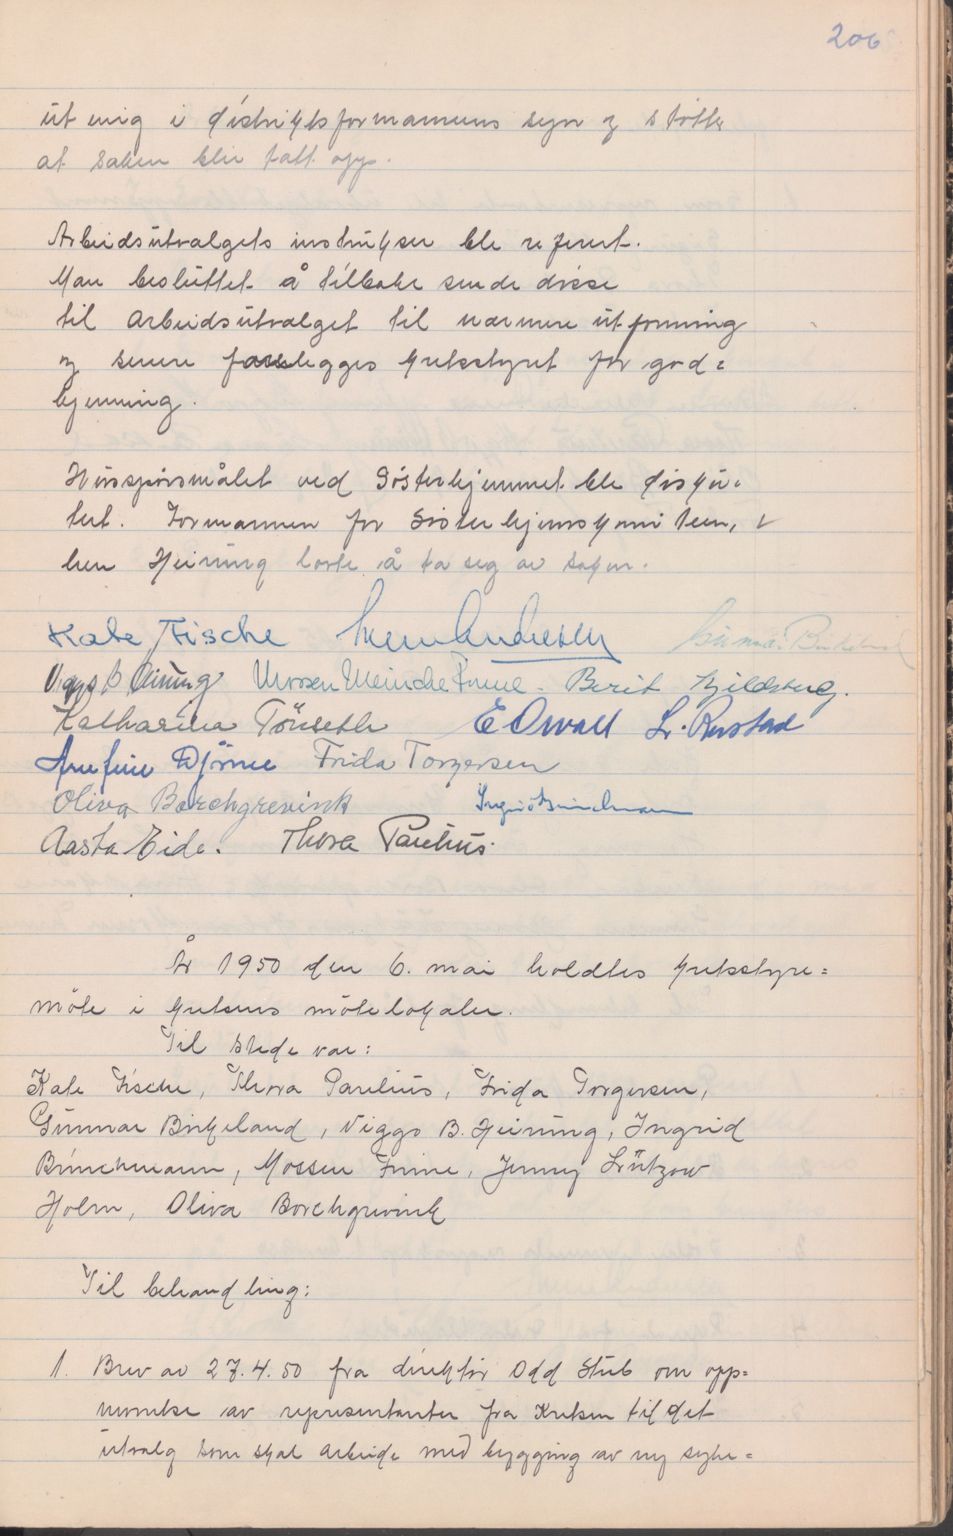 206
ut enig i distriktsformannens syn og støtte
at saken blir tatt opp.
Arbeidsutvalgets instrukser ble referert.
Man besluttet å tilbake sende disse
til Arbeidsutvalget til nærmere utforming
og senere forelegges kretsstyret for god=
kjenning.
Husspørsmålet ved Søsterhjemmet ble disku-
tert. Formannen for Søsterhjemskomiteen,
herr Heirung lovte å ta seg av saken.
Kate Fische Gunnar Birkeland
Viggo B Heirung Mossen Meincke Finne. Berit Kjeldsberg.
Katharina Tönseth E Owall L. Rustad
Arnfine Djörne Frida Torgersen
Oliva Borchgrevink Ingrid Brinchmann
Aasta Eide. Thora Paulius.
År 1950 den 6. mai holdtes kretsstyre=
møte i kretsens møtelokaler.
Til stede var:
Kate Fische, Thora Paulius, Frida Torgersen,
Gunnar Birkeland, Viggo B. Heirung, Ingrid
Brinchmann, Mossen Finne, Jenny Lützow
Holm, Oliva Borchgrevink
Til behandling:
1. Brev av 27.4.50 fra direktør Odd Stub om opp=
nevnelse av representanter fra Kretsen til det
utvalg som skal arbeide med bygging av ny syke=